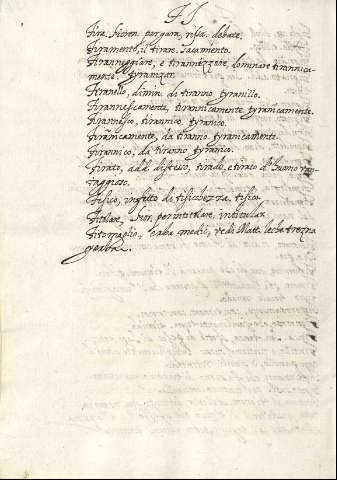 Tira. fioren. per gara, rissa. debate.
Tiramento, il tirare. sacamiento.
Tiranneggiare, e tirannizzare, dominare tirannica-
mente. tyranizar.
Tiranello, dimin. di tiranno tyranillo.
Tirannescamente, tirannicamente. tyranicamente.
Tirannesco, tirannico. tyranico.
Tirannicamente, da tiranno. tyranicamente.
Tirannico, da tiranno tyranico.
Tirato, add. disteso, tirado, e tirato d'huomo
Tisico, infetto di tisichezza. tisico.
Titolare, fior. per intitolare, intitular.
Titimaglio, herba medi, vedi Matt. lechetrezna
yerba.